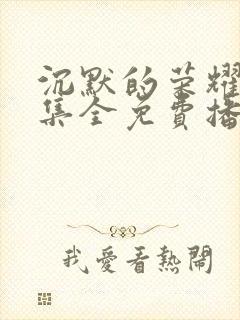 沉默的荣耀
集全免費播
我愛看熱鬧